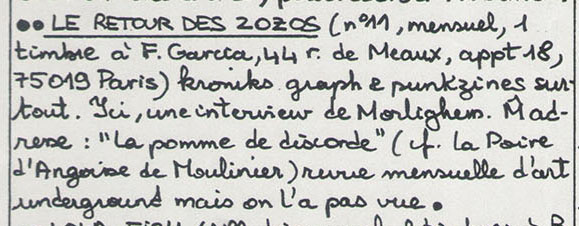 ●● LE RETOUR DES ZOZOS (n°11, mensuel, 1
timbre à F. Garcia, 44 r. de Meaux, appt 18,
75019 Paris) kroniks graph & punkzines sur-
tout. Ici, une interview de Morlighem. Mad-
rese : "La pomme de discorde" (cf. la Poire
d'Angoise de Moulinier) revue mensuelle d'art
underground mais on l'a pas vue.